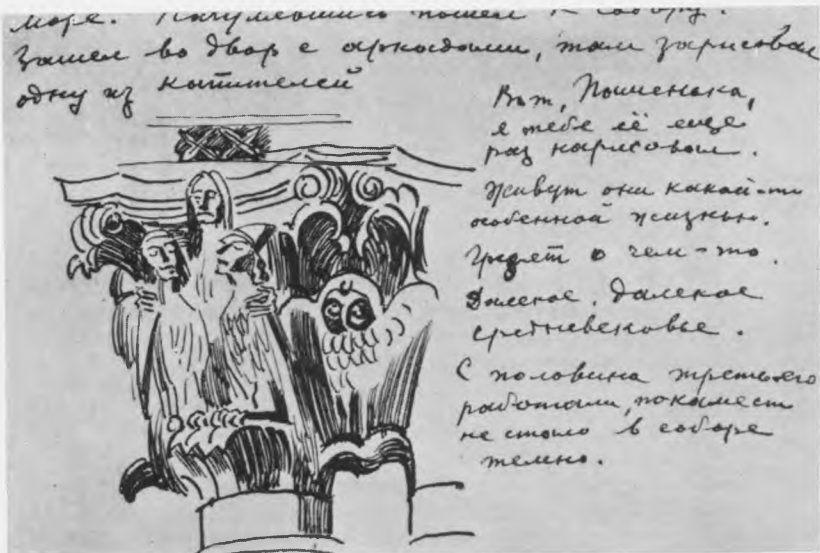 море. пошел к собору.
Зашел во двор с аркадами, там зарисовал
одну из капителей
Вот,
я тебе её еще
раз нарисовал.
Живут они какой-то
особенной жизнью.
Грезят о чем-то.
Далекое, далекое
средневековье.
С половина третьего
работали, покамест
не стало в соборе
темно.